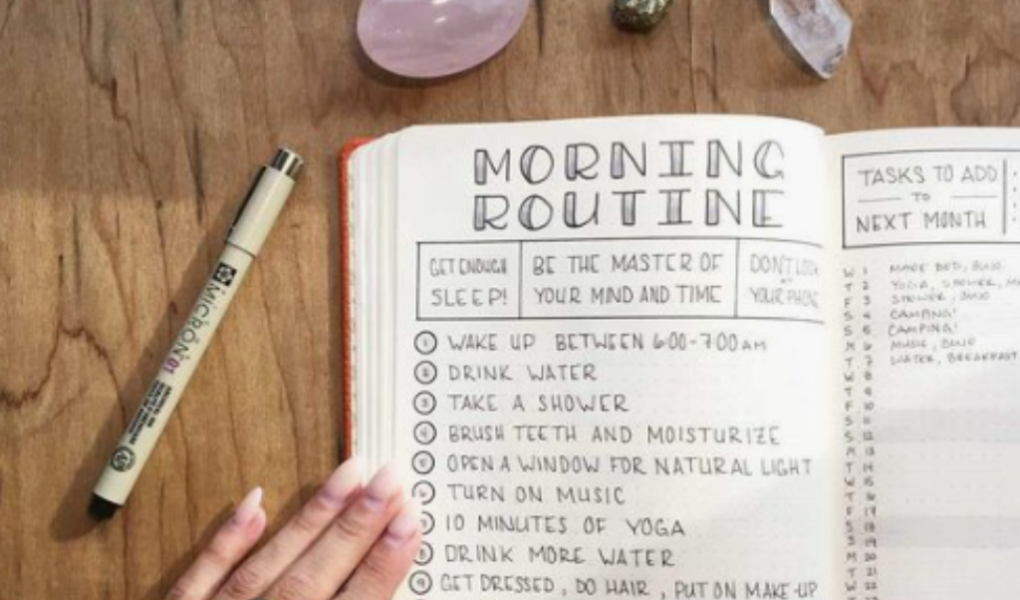 MICRON 01
MORNING
ROUTINE
GET ENOUGH
SLEEP!
BE THE MASTER OF
YOUR MIND AND TIME
DON'T LOOK
YOUR PHONE
1 WAKE UP BETWEEN 6:00-7:00 AM
2 DRINK WATER
3 TAKE A SHOWER
4 BRUSH TEETH AND MOISTURIZE
5 OPEN A WINDOW FOR NATURAL LIGHT
TURN ON MUSIC
10 MINUTES OF YOGA
8 DRINK MORE WATER
9 GET DRESSED, DO HAIR, PUT ON MAKE-UP
TASKS TO ADD
TO
NEXT MONTH
W 1 MAKE BED, BUJO
T 2 YOGA, SHOWER,
F 3 SHOWER, BUJO
S 4 CAMPING!
S 5 CAMPING!
M 6 MUSIC, BUJO
T 7 WATER, BREAKFAST
W 8
T 9
F 10
S 11
S 12
M 13
T 14
W 15
T 16
F 17
S 18
S 19
M 20
T 21
W 22